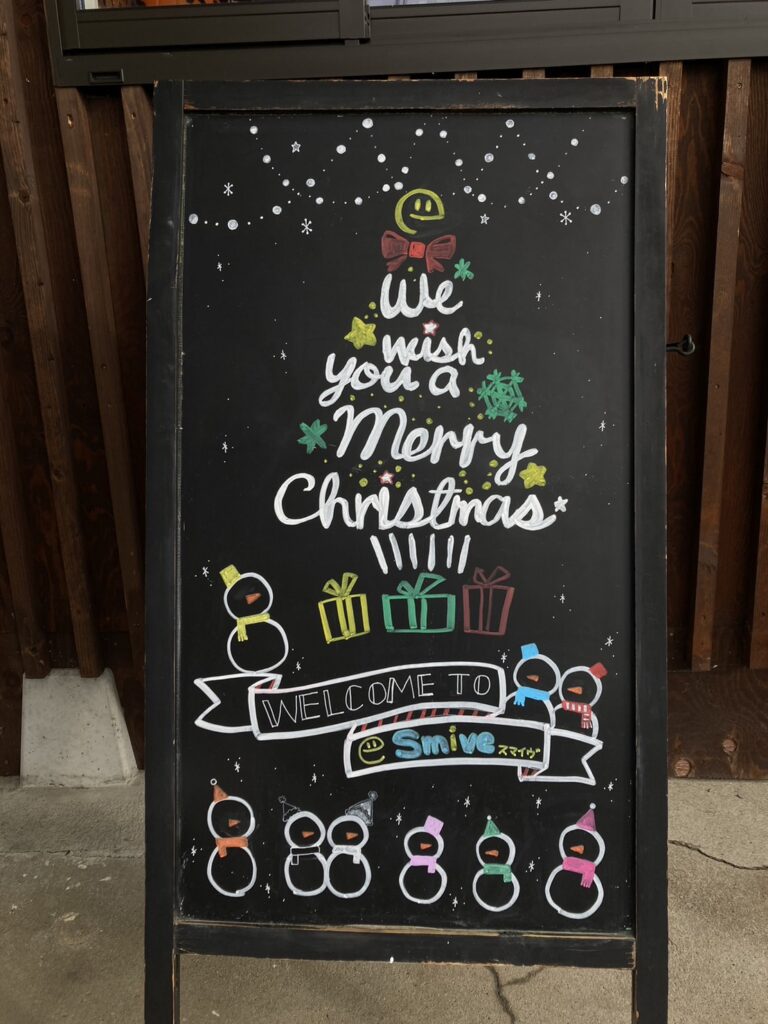 We
wish
you a
Merry
Christmas
WELCOME TO
e Smive スマイヴ